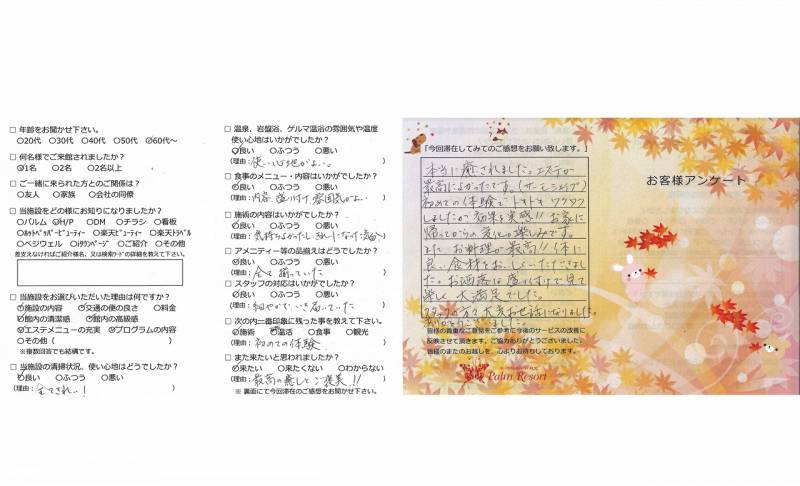 □ 年齢をお聞かせ下さい。
○20代 ○30代 ○40代 ○50代 ○60代〜
□ 何名様でご来館されましたか？
○1名 ○2名 ○2名以上
□ ご一緒に来られた方とのご関係は？
○友人 ○家族 ○会社の同僚
□ 当施設をどの様にお知りになりましたか？
○パルム ○H/P ○DM ○チラシ ○看板
○ホットペッパービューティー ○楽天ビューティー ○楽天トラベル
○ベジウェル ○iタウンページ ○ご紹介 ○その他
差支えなければご紹介様名、又は検索ワードの詳細を教えて下さい。
□ 当施設をお選びいただいた理由は何ですか？
○施設の内容 ○交通の便の良さ ○料金
○館内の清潔感 ○館内の高級感
○エステメニューの充実 ○プログラムの内容
○その他（ ）
※複数回答でも結構です。
□ 当施設の清掃状況、使い心地はどうでしたか？
○良い ○ふつう ○悪い
（理由： ）
□ 温泉、岩盤浴、ゲルマ温浴の雰囲気や温度
使い心地はいかがでしたか？
○良い ○ふつう ○悪い
（理由：使い心地がよい。 ）
□ 食事のメニュー・内容はいかがでしたか？
○良い ○ふつう ○悪い
（理由：内容、盛り付け、雰囲気がよい ）
□ 施術の内容はいかがでしたか？
○良い ○ふつう ○悪い
（理由：気持ちよかった ）
□ アメニティー等の品揃えはどうでしたか？
○良い ○ふつう ○悪い
（理由：全て揃っていた ）
□ スタッフの対応はいかがでしたか？
○良い ○ふつう ○悪い
（理由：細やかでいき届いていた ）
□ 次の内一番印象に残った事を教えて下さい。
○施術 ○温活 ○食事 ○観光
（理由：初めての体験 ）
□ また来たいと思われましたか？
○来たい ○来たくない ○わからない
（理由：最高の癒しとご褒美!! ）
※ 裏面にて今回滞在のご感想をお聞かせ下さい。
「今回滞在してみてのご感想をお願い致します。」
本当に癒されました。エステが
最高によかったです。(サーモシェイプ)
初めての体験でドキドキワクワク
しましたが効果を実感!! お家に
帰ってからの変化も楽しみです。
また、お料理が最高!! 体に
良い食材をおいしくいただきまし
た。お洒落な盛り付けで見て
楽しく大満足でした。
スタッフの方々大変お世話になりました。
ありがとうございました。
皆様の貴重なご意見をご参考に今後のサービスの改善に
反映させて頂きます。ご協力ありがとうございました。
皆様のまたのお越しを、心よりお待ちしております。
Palm Resort
お客様アンケート